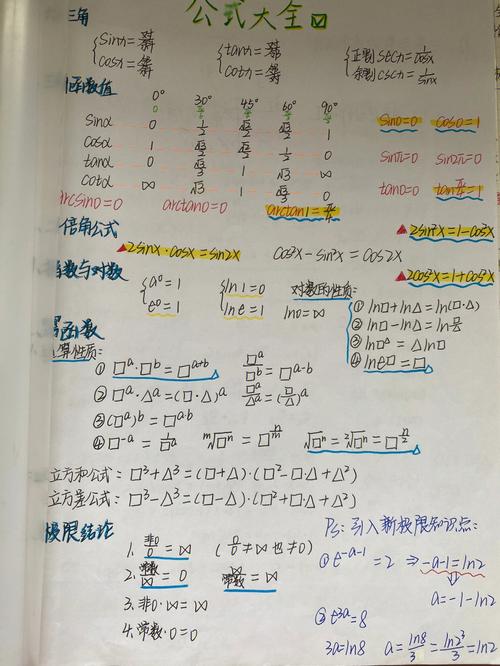 公式大全
三角
sinα = 对/斜
cosα = 邻/斜
tanα = 对/邻
cotα = 邻/对
正割 secx = 1/cosx
余割 cscx = 1/sinx
函数值
0° 30° 45° 60° 90°
sinα 0 1/2 √2/2 √3/2 1
cosα 1 √3/2 √2/2 1/2 0
tanα 0 √3/3 1 √3 ∞
cotα ∞ √3 1 √3/3 0
sin0=0 cos0=1
sinπ=0 sin2π=0
tan0=0 tan π/4=1
arcsin0=0 arctan0=0 arctan1=π/4
倍角公式
▲2sinx·cosx=sin2x cos²x-sin²x=cos2x
▲2sin²x=1-cos2x
▲2cos²x=1+cos2x
指数与对数
a⁰=1
e⁰=1
ln1=0
lne=1
ln0=∞
对数的性质:
① ln□+ln△=ln(□·△)
② ln□-ln△=ln □/△
③ ln□^△=△ln□
④ lne^□=□
幂函数
运算性质:
① □^a·□^b=□^(a+b) □^a/□^b=□^(a-b)
② □^a·△^a=(□·△)^a □^a/△^a=(□/△)^a
③ (□^a)^b=□^(a·b)
④ □^-a=1/□^a ᵐ√□ⁿ=□^(n/m) √□ⁿ=²√□ⁿ=□^(n/2)
立方和公式: □³+△³=(□+△)·(□²-□·△+△²)
立方差公式: □³-△³=(□-△)·(□²+□·△+△²)
极限结论
1. 非0/0=∞ (0/0≠∞也≠0)
2. 常数/∞=0 ∞/常数=∞
3. 非0·∞=∞
4. 常数·0=0
Ps: 引入新极限知识点:
① e^(-a-1)=2 ⇒ -a-1=ln2
a=-1-ln2
② e^3a=8
3a=ln8 a=ln8/3=ln2³/3=ln2